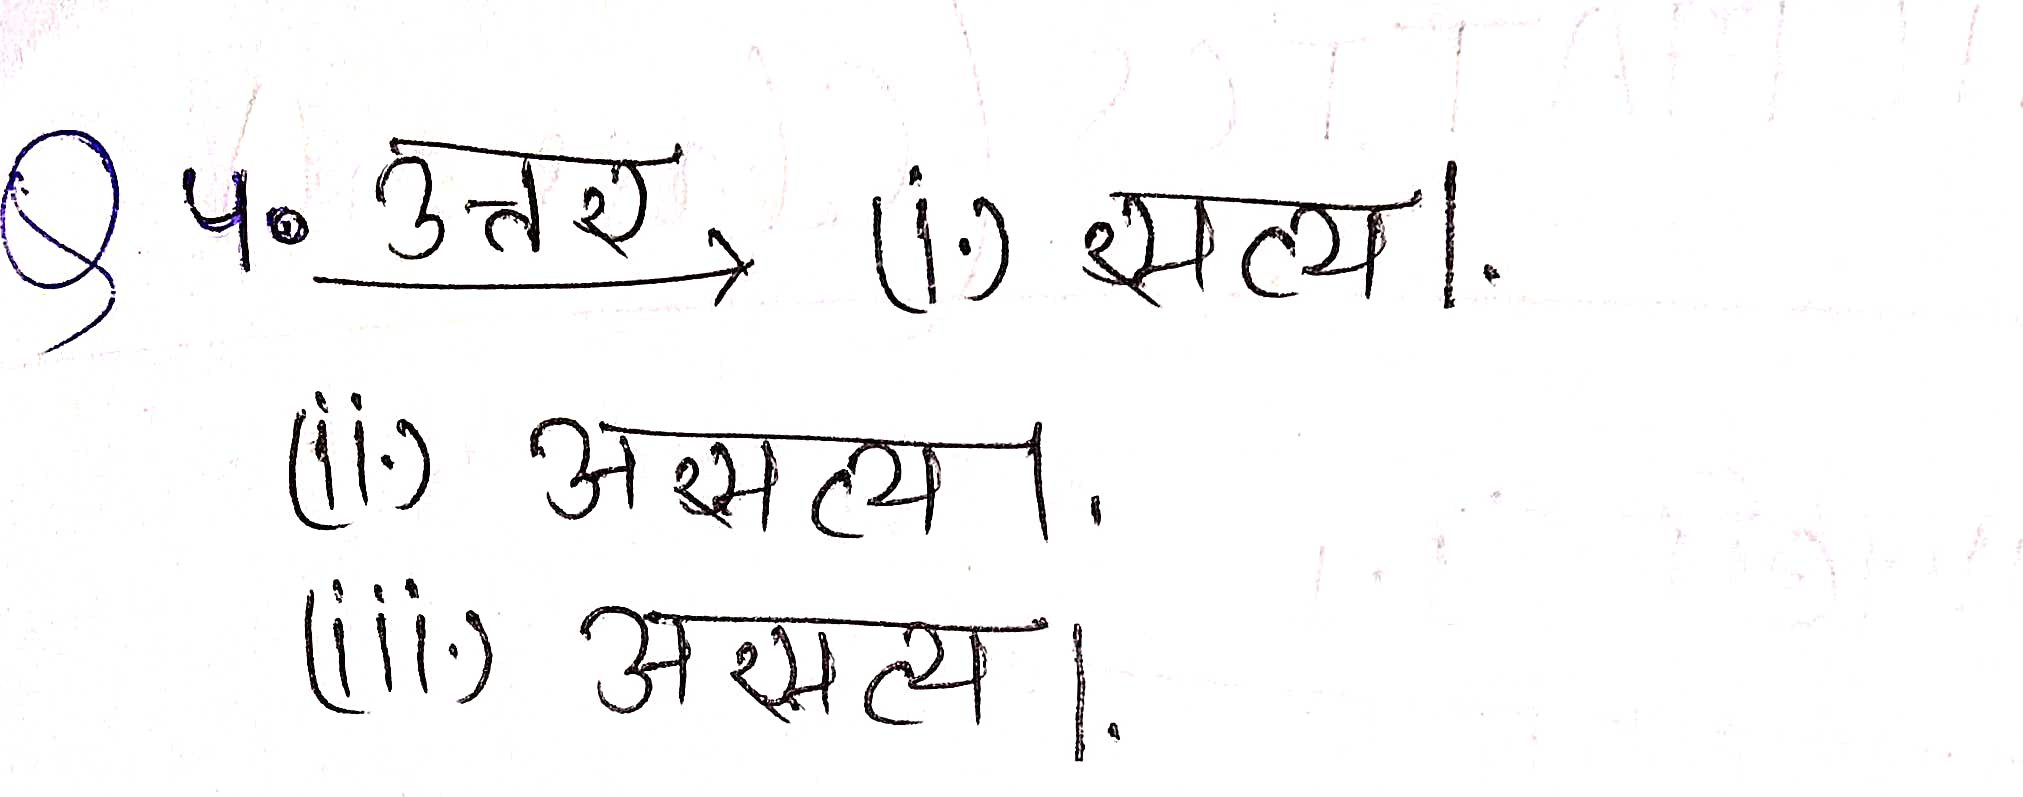 Q ५. उत्तर → (i.) सत्य।.
(ii.) असत्य।.
(iii.) असत्य।.